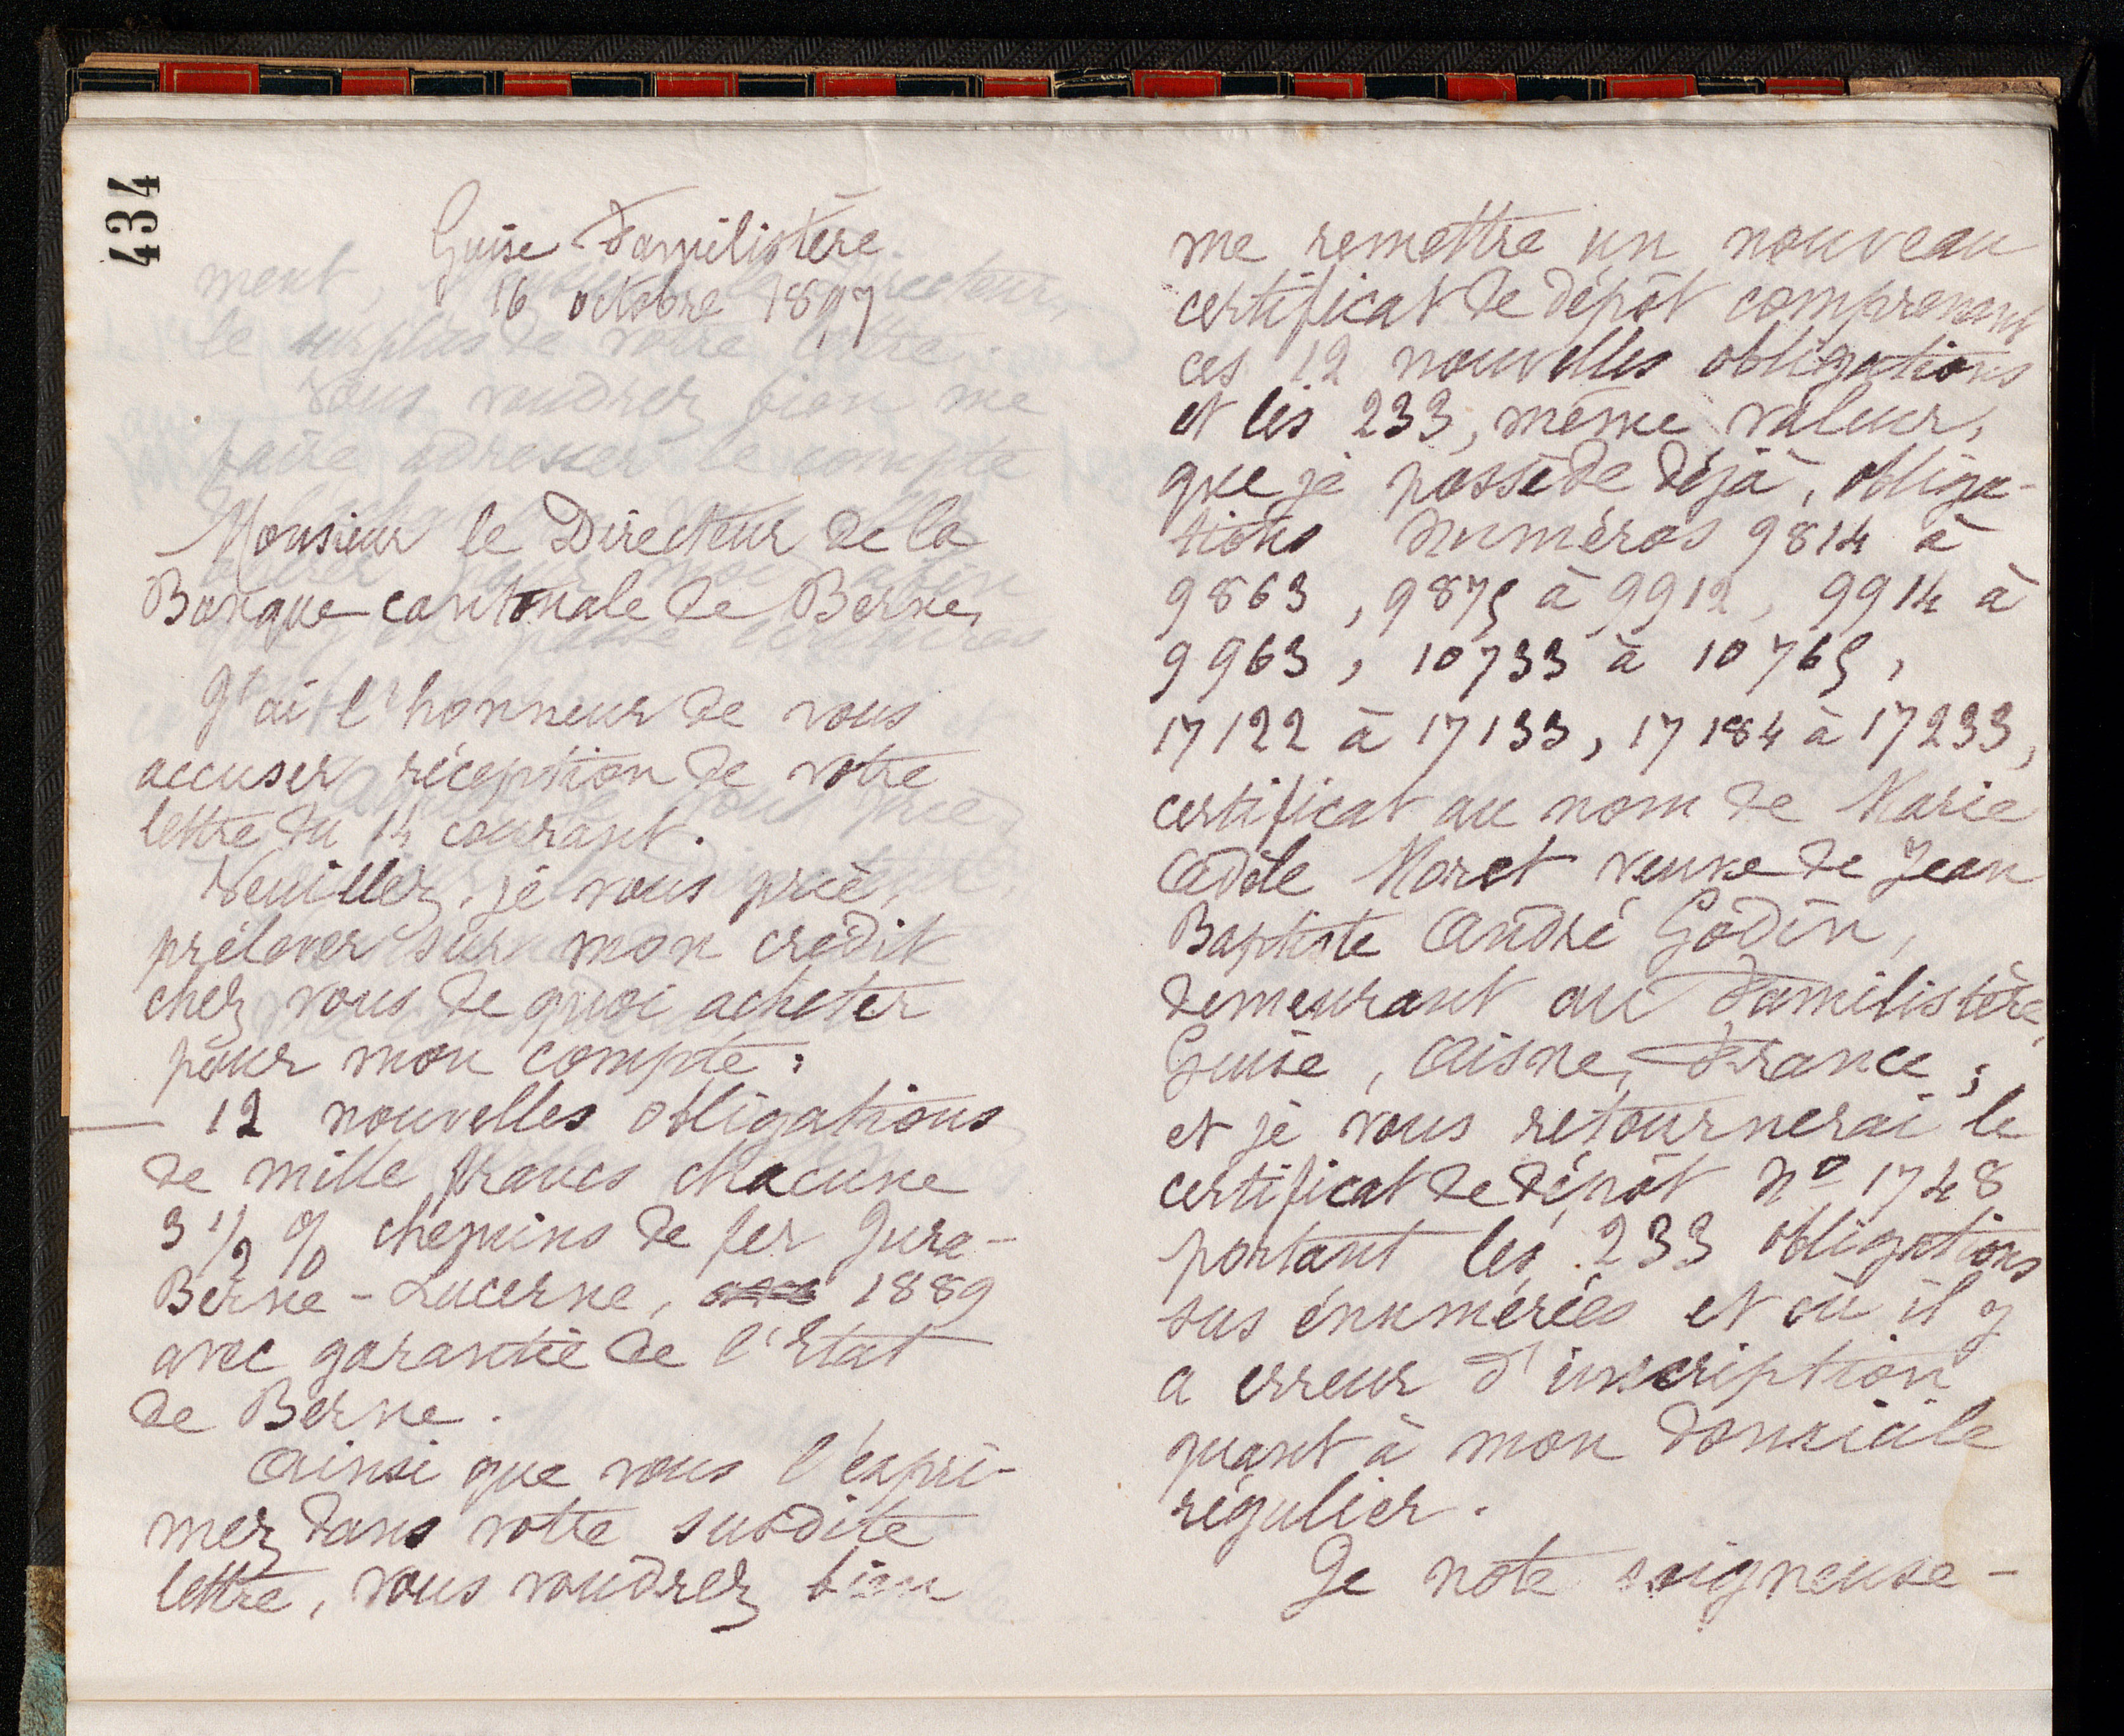 434
Guise Familistère
16 octobre 1897
Monsieur le Directeur de la
Banque cantonale de Berne,
J'ai l'honneur de vous
accuser réception de votre
lettre du 14 courant.
Veuillez, je vous prie,
prélever sur mon crédit
chez vous de quoi acheter
pour mon compte :
12 nouvelles obligations
de mille francs chacune
3 1/2 % chemins de fer Jura-
Berne-Lucerne, 1889
avec garantie de l'Etat
de Berne.
Ainsi que vous l'expri-
mez dans votre susdite
lettre, vous voudrez bien
me remettre un nouveau
certificat de dépôt comprenant
ces 12 nouvelles obligations
et les 233, même valeur,
que je possède déjà, obliga-
tions numéros 9814 à
9863, 9875 à 9912, 9914 à
9963, 10733 à 10765,
17122 à 17133, 17184 à 17233,
certificat au nom de Marie
Adèle Moret veuve de Jean
Baptiste André Godin,
demeurant au Familistère,
Guise, Aisne, France ;
et je vous retournerai le
certificat de dépôt nº 1748
portant les 233 obligations
sus énumérées et où il y
a erreur d'inscription
quant à mon domicile
régulier.
Je note soigneuse-